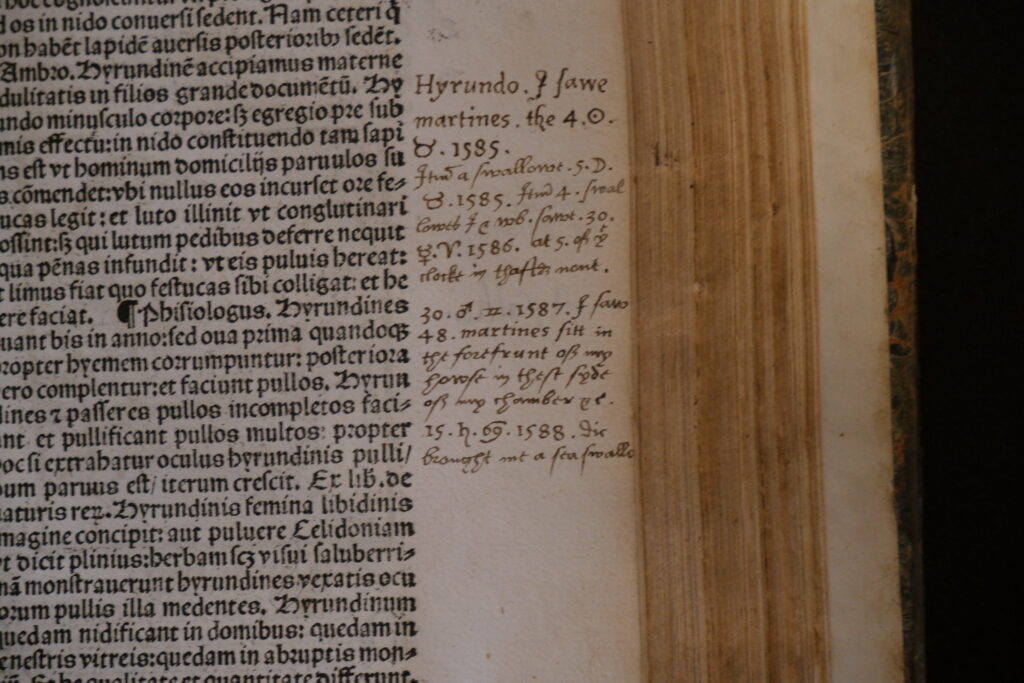 os in nido conuersi sedent. Nam ceteri q̃
on habēt lapidē auersis posteriorib⁹ sedēt.
Ambro. Hyrundinē accipiamus materne
dulitatis in filios grande documētū. Hy
undo minusculo corpore: sꝫ egregio pre sub
mis effectu: in nido constituendo tam sapi
ns est vt hominum domicilijs paruulos su
s cōmendet: vbi nullus eos incurset ore fe⸗
ucas legit: et luto illinit vt conglutinari
ossint: sꝫ qui lutum pedibus deferre nequit
qua pēnas infundit: vt eis puluis hereat:
t limus fiat quo festucas sibi colligat: et he
ere faciat. ¶ Phisiologus. Hyrundines
uant bis in anno: sed oua prima quandoqꝫ
propter hyemem corrumpuntur: posteriora
ero complentur: et faciunt pullos. Hyrun
dines ⁊ passeres pullos incompletos faci⸗
unt et pullificant pullos multos: propter
hoc si extrahatur oculus hyrundinis pulli/
dum paruus est/ iterum crescit. Ex lib. de
naturis reꝝ. Hyrundinis femina libidinis
magine concipit: aut puluere Celidoniam
vt dicit plinius: herbam scꝫ visui saluberri⸗
mā monstrauerunt hyrundines vexatis ocu
orum pullis illa medentes. Hyrundinum
quedam nidificant in domibus: quedam in
enestris vitreis: quedam in abruptis mon⸗
qualitate et quantitate differunt.
Hyrundo. I sawe
martines. the 4. ☉.
♉. 1585.
Itm̄ a swallowe. 5. D.
♉. 1585. Itm̄ 4. swal
lowes I sawe. 30.
☿. ♈. 1586. at 5. of yͤ
clocke in thafter none.
30. ♂. ♊. 1587. I saw
48. martines sitt in
the forefrunt off my
howse in thest syde
off my chamber
15. ♄. ♋. 1588. Dic
browght me a sea swallo